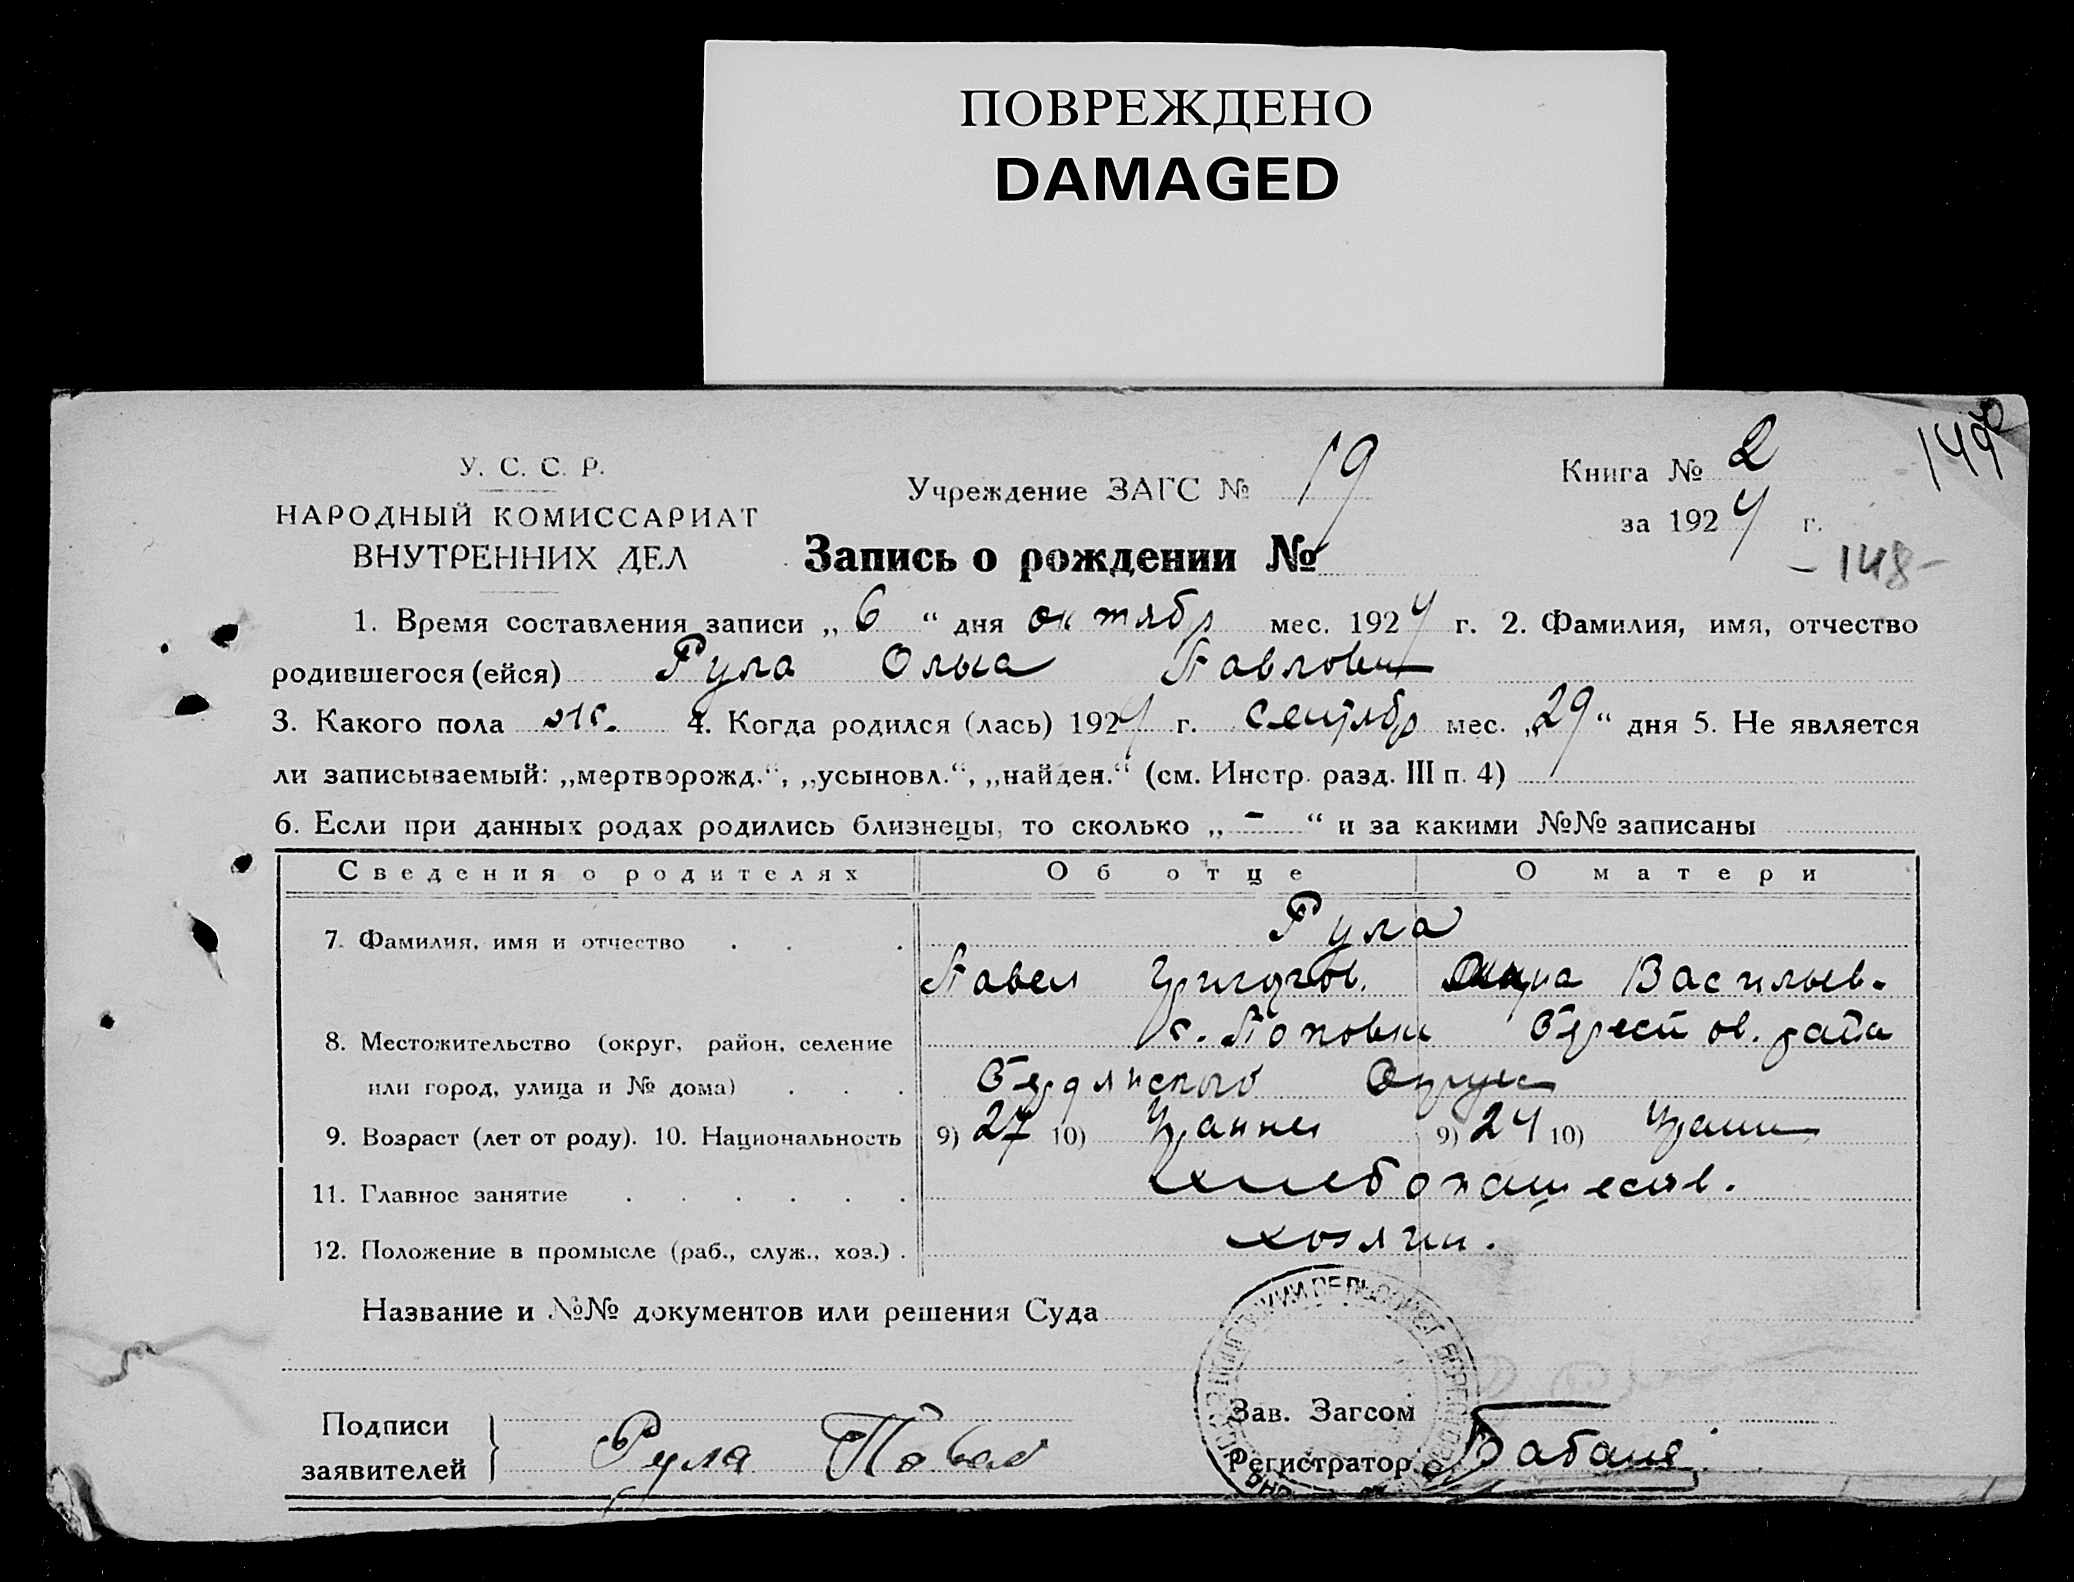 ПОВРЕЖДЕНО
DAMAGED
149
У. С. С. Р.
НАРОДНЫЙ КОМИССАРИАТ
ВНУТРЕННИХ ДЕЛ
Учреждение ЗАГС № 19
Книга № 2
за 1924 г.
-148-
Запись о рождении №
1. Время составления записи „6“ дня октябр мес. 1924 г. 2. Фамилия, имя, отчество
родившегося (ейся) Рула Ольга Павлов
3. Какого пола 4. Когда родился (лась) 1924 г. сентябр мес. „29“ дня 5. Не является
ли записываемый: „мертворожд.“, „усыновл.“, „найден.“ (см. Инстр. разд. III п. 4)
6. Если при данных родах родились близнецы, то сколько „-“ и за какими №№ записаны
Сведения о родителях Об отце О матери
7. Фамилия, имя и отчество Рула
Павел Григоров. Васильев.
8. Местожительство (округ, район, селение с. Поповки Берестов. района
или город, улица и № дома) Бердянского Округа
9. Возраст (лет от роду). 10. Национальность 9) 27 10) 9) 24 10)
11. Главное занятие хлебопашеств.
12. Положение в промысле (раб., служ., хоз.) хозяин.
Название и №№ документов или решения Суда
Подписи
заявителей Рула Павел
Зав. Загсом
Регистратор